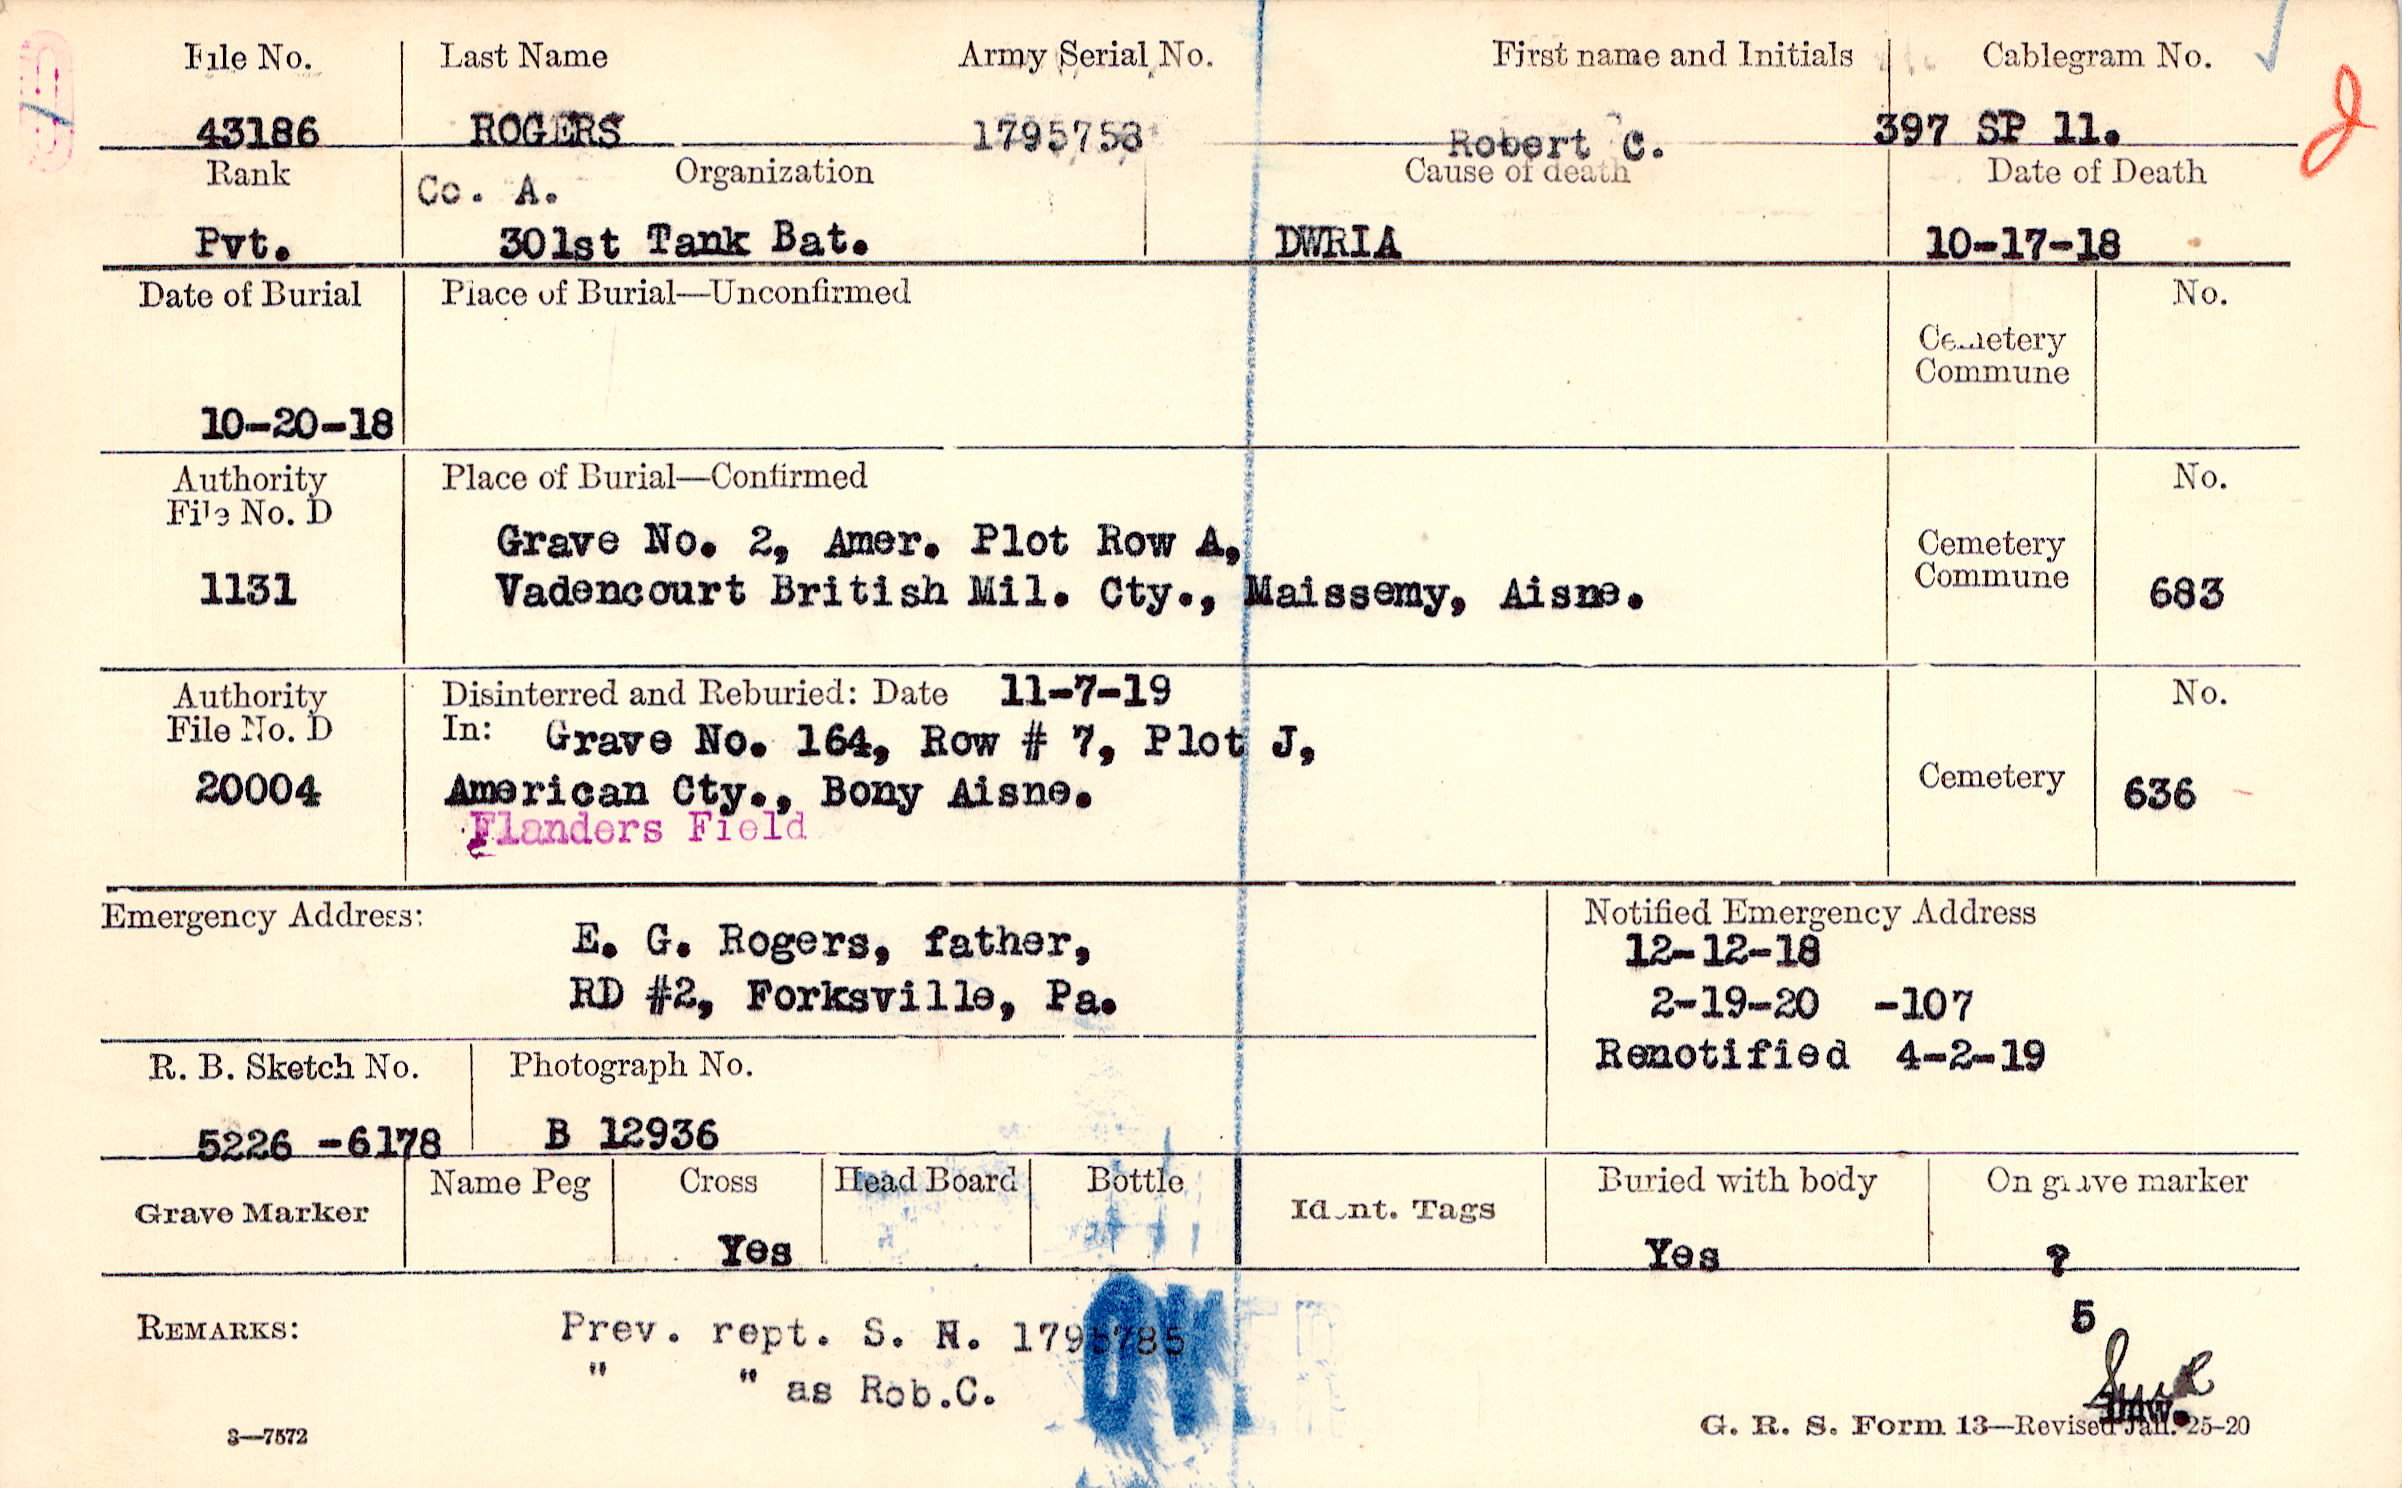 File No. Last Name Army Serial No. First name and Initials Cablegram No.
43186 ROGERS 1795758 Robert C. 397 SP 11.
Rank Organization Cause of death Date of Death
Co. A.
Pvt. 301st Tank Bat. DWRIA 10-17-18
Date of Burial Place of Burial—Unconfirmed No.
Cemetery
Commune
10-20-18
Authority Place of Burial—Confirmed No.
File No. D
Grave No. 2, Amer. Plot Row A, Cemetery
1131 Vadencourt British Mil. Cty., Maissemy, Aisne. Commune 683
Authority Disinterred and Reburied: Date 11-7-19 No.
File No. D In: Grave No. 164, Row # 7, Plot J,
20004 American Cty., Bony Aisne. Cemetery 636
Flanders Field
Emergency Address: Notified Emergency Address
E. G. Rogers, father, 12-12-18
RD #2, Forksville, Pa. 2-19-20 -107
R. B. Sketch No. Photograph No. Renotified 4-2-19
5226 -6178 B 12936
Grave Marker Name Peg Cross Head Board Bottle Ident. Tags Buried with body On grave marker
Yes Yes ?
5
REMARKS: Prev. rept. S. N. 1795785
" " as Rob.C.
3—7572 G. R. S. Form 13—Revised Jan. 25-20